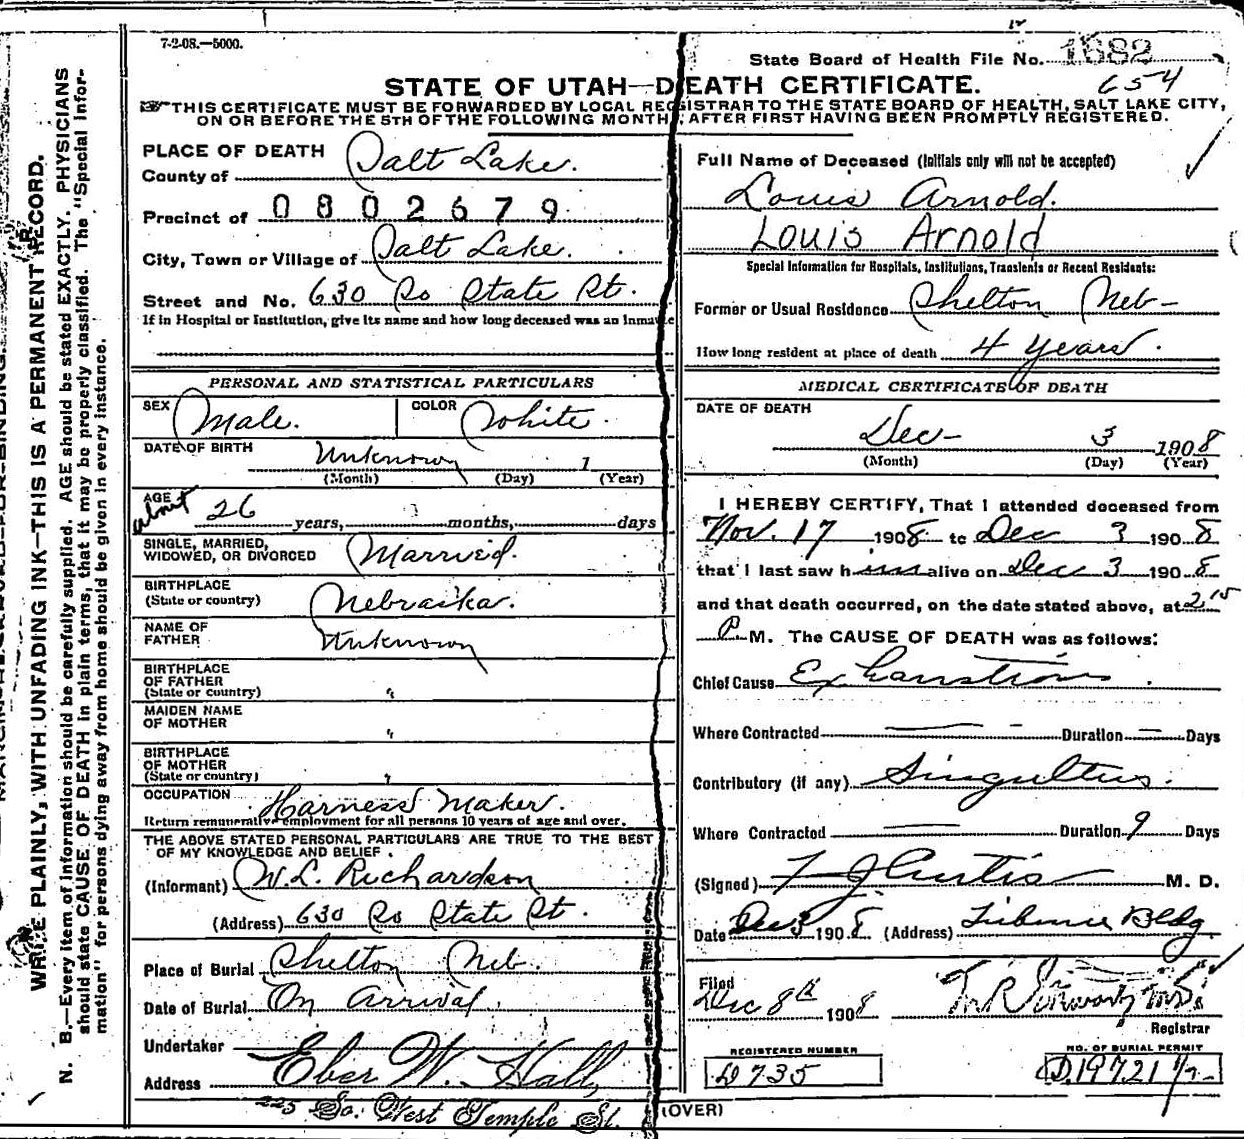 7-2-08.—5000.
State Board of Health File No. 1682
654
STATE OF UTAH—DEATH CERTIFICATE.
THIS CERTIFICATE MUST BE FORWARDED BY LOCAL REGISTRAR TO THE STATE BOARD OF HEALTH, SALT LAKE CITY,
ON OR BEFORE THE 5TH OF THE FOLLOWING MONTH, AFTER FIRST HAVING BEEN PROMPTLY REGISTERED.
PLACE OF DEATH
County of Salt Lake.
Precinct of 0802679
City, Town or Village of Salt Lake.
Street and No. 630 So State St.
If in Hospital or Institution, give its name and how long deceased was an Inmate
PERSONAL AND STATISTICAL PARTICULARS
SEX Male. COLOR White.
DATE OF BIRTH Unknown 1
(Month) (Day) (Year)
AGE
about 26 years, months, days
SINGLE, MARRIED,
WIDOWED, OR DIVORCED Married.
BIRTHPLACE
(State or country) Nebraska.
NAME OF
FATHER Unknown
BIRTHPLACE
OF FATHER
(State or country) "
MAIDEN NAME
OF MOTHER "
BIRTHPLACE
OF MOTHER
(State or country) "
OCCUPATION Harness Maker.
Return remunerative employment for all persons 10 years of age and over.
THE ABOVE STATED PERSONAL PARTICULARS ARE TRUE TO THE BEST
OF MY KNOWLEDGE AND BELIEF.
(Informant) W. L. Richardson
(Address) 630 So State St.
Place of Burial Shelton Neb.
Date of Burial On Arrival.
Undertaker Eber W. Hall,
Address 225 So. West Temple St.
Full Name of Deceased (Initials only will not be accepted)
Louis Arnold.
Louis Arnold
Special Information for Hospitals, Institutions, Transients or Recent Residents:
Former or Usual Residence Shelton Neb-
How long resident at place of death 4 years.
MEDICAL CERTIFICATE OF DEATH
DATE OF DEATH
Dec- 3 1908
(Month) (Day) (Year)
I HEREBY CERTIFY, That I attended deceased from
Nov. 17 1908 to Dec 3 1908
that I last saw him alive on Dec 3 1908
and that death occurred, on the date stated above, at 2 15
P. M. The CAUSE OF DEATH was as follows:
Chief Cause Exhaustion.
Where Contracted — Duration — Days
Contributory (if any) Singultus.
Where Contracted — Duration 9 Days
(Signed) F J Curtis M. D.
Date Dec 3 1908 (Address) Tribune Bldg.
Filed
Dec 8th 1908
Registrar
REGISTERED NUMBER
D 735
NO. OF BURIAL PERMIT
D.19721
(OVER)
WRITE PLAINLY, WITH UNFADING INK—THIS IS A PERMANENT RECORD.
N. B.—Every item of information should be carefully supplied. AGE should be stated EXACTLY. PHYSICIANS
should state CAUSE OF DEATH in plain terms, that it may be properly classified. The "Special Infor-
mation" for persons dying away from home should be given in every instance.